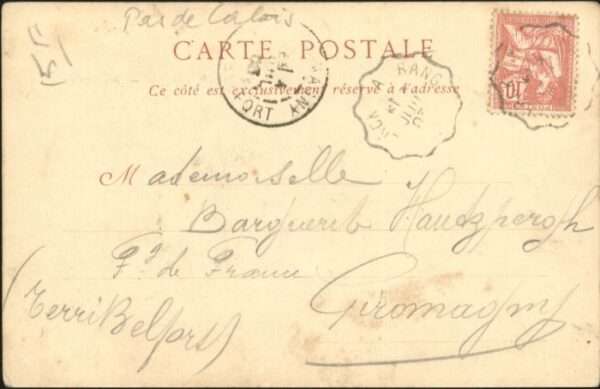 Pas de Calais
CARTE POSTALE
Ce côté est exclusivement réservé à l'adresse
10
Mademoiselle
Bargueret Hantzpergh
Fg de France
Giromagny
(Terri Belfort)